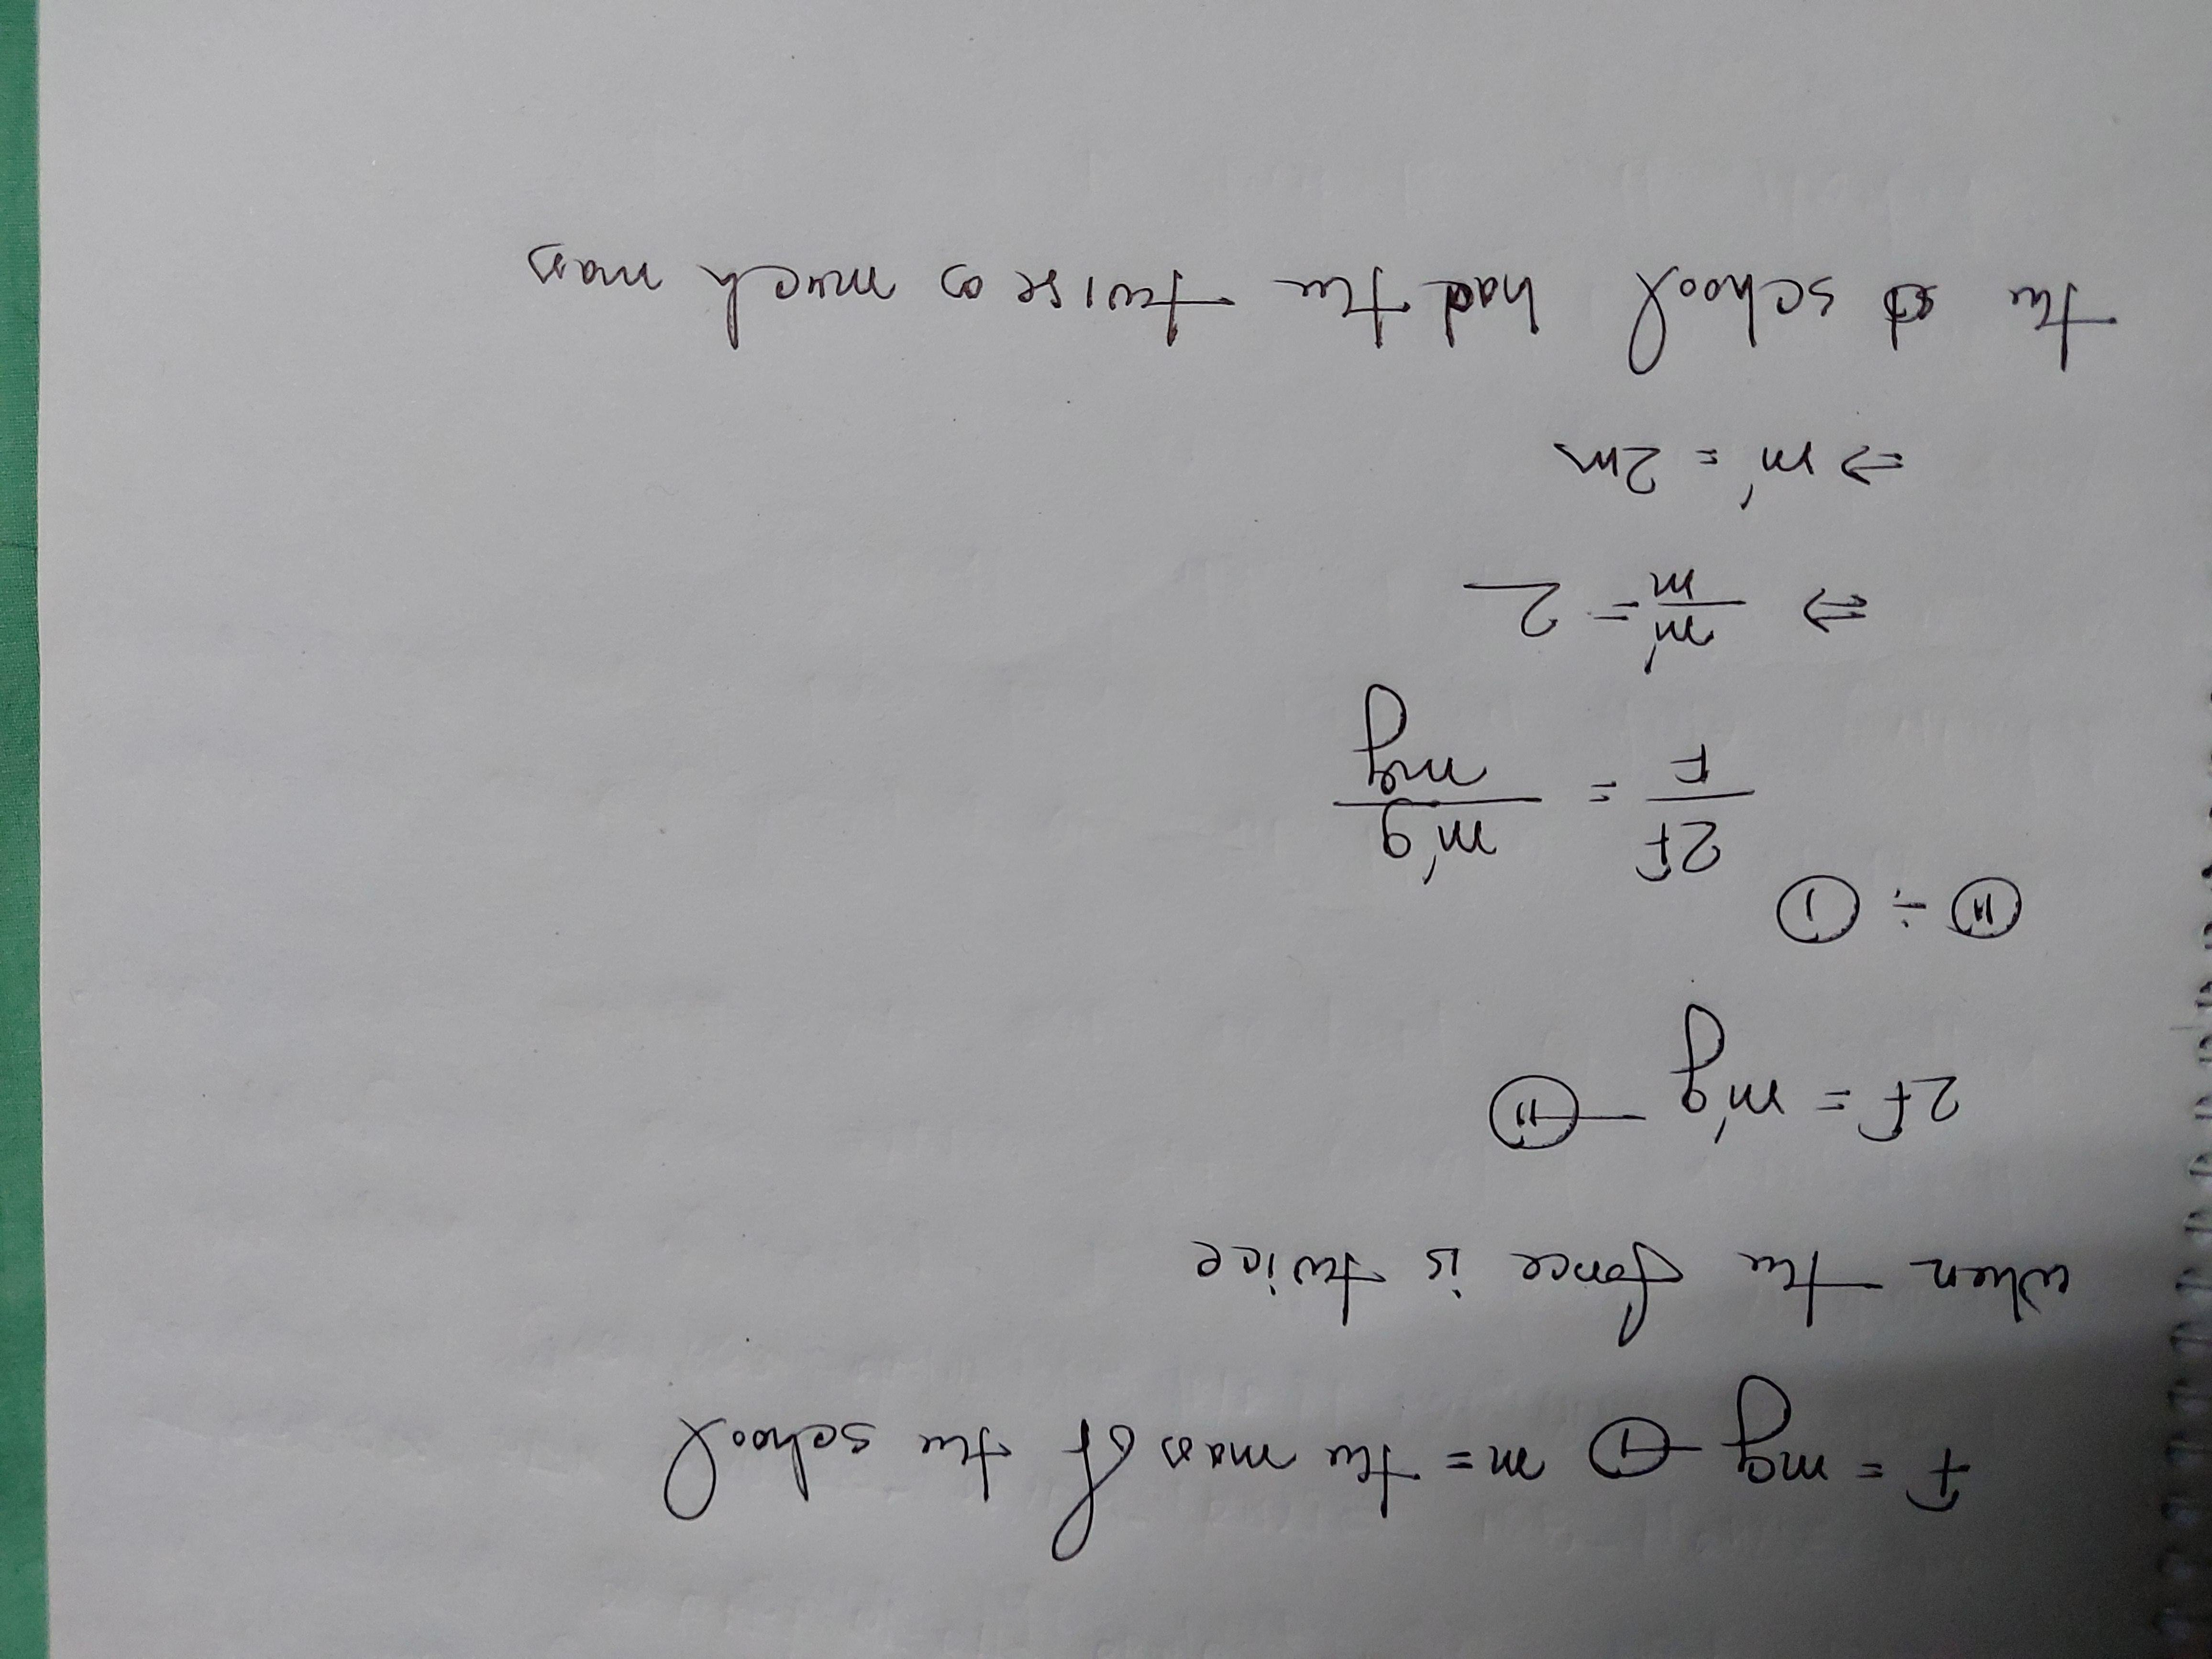 F = mg — (I) m = the mass of the school
when the force is twice
2F = m'g — (II)
(II) ÷ (I)
2F/F = m'g/mg
⇒ m'/m = 2
⇒ m' = 2m
the school had the twise as much mass